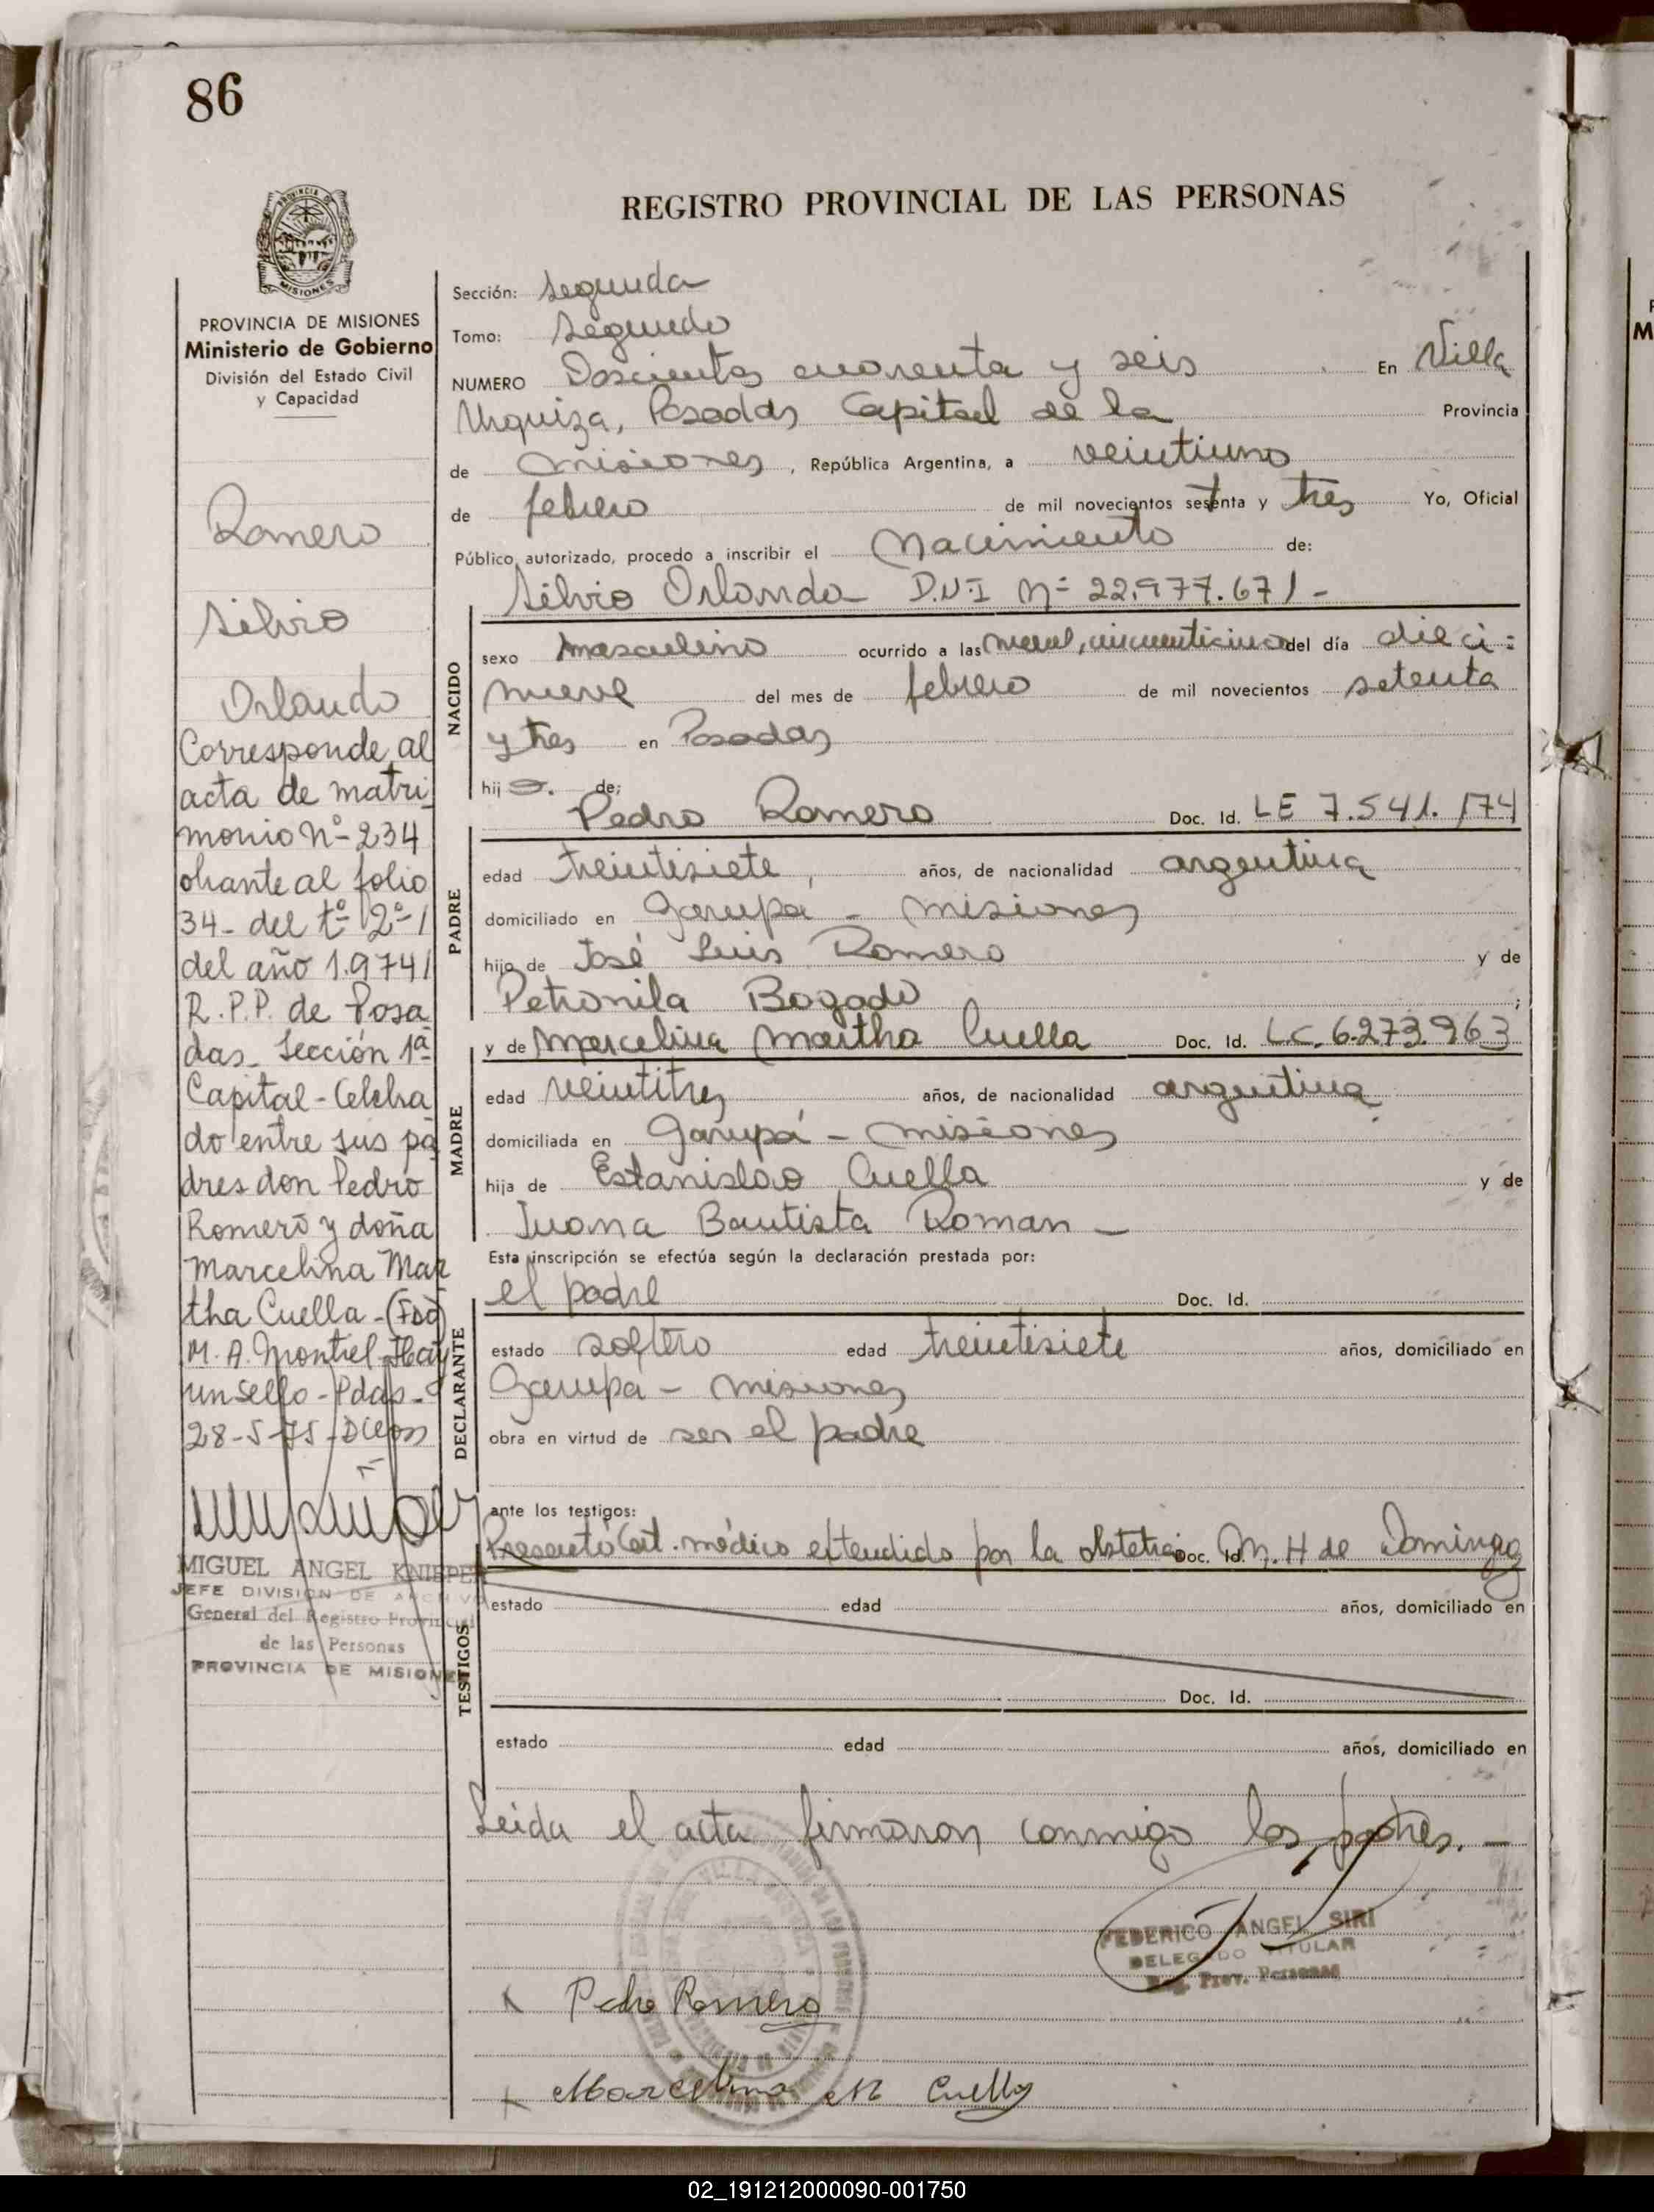 86
REGISTRO PROVINCIAL DE LAS PERSONAS
MISIONES
PROVINCIA DE MISIONES
Ministerio de Gobierno
División del Estado Civil
y Capacidad
Romero
Silvio
Orlando
Corresponde al
acta de matri
monio Nº 234
obrante al folio
34- del tº 2º /
del año 1.974/
R.P.P. de Posa
das- Sección 1ª
Capital - Celebra
do entre sus pa
dres don Pedro
Romero y doña
Marcelina Mar
tha Cuella - (Fdo)
M. A. Montiel - Hay
un sello - Pdas -
28-5-75 -
MIGUEL ANGEL KNIEPER
JEFE DIVISION DE ARCHIVO
General del Registro Provincial
de las Personas
PROVINCIA DE MISIONES
Sección: segunda
Tomo: segundo
NUMERO Doscientos cuarenta y seis En Villa
Urquiza, Posadas Capital de la Provincia
de Misiones, República Argentina, a veintiuno
de febrero de mil novecientos setenta y tres Yo, Oficial
Público autorizado, procedo a inscribir el Nacimiento de:
Silvio Orlando D.N.I Nº 22.977.671-
NACIDO
sexo masculino ocurrido a las nueve, cincuenticinco del día dieci=
nueve del mes de febrero de mil novecientos setenta
y tres en Posadas
hijo. de;
Pedro Romero Doc. Id. LE 7.541.174
PADRE
edad treintisiete, años, de nacionalidad argentina
domiciliado en Garupa - Misiones
hijo de José Luis Romero y de
Petronila Bogado ;
y de Marcelina Martha Cuella Doc. Id. L.C. 6.273.963
MADRE
edad veintitres años, de nacionalidad argentina
domiciliada en Garupá - Misiones
hija de Estanislao Cuella y de
Juana Bautista Roman -
Esta inscripción se efectúa según la declaración prestada por:
el padre Doc. Id.
DECLARANTE
estado soltero edad treintisiete años, domiciliado en
Garupá - Misiones
obra en virtud de ser el padre
ante los testigos:
Presentó Cert. médico extendido por la obstetra Doc. Id. M. H de Domingo
TESTIGOS
estado edad años, domiciliado en
Doc. Id.
estado edad años, domiciliado en
Leida el acta firmaron conmigo los padres. -
FEDERICO ANGEL SIRI
DELEGADO TITULAR
Prov. Personas
Pedro Romero
Marcelina M Cuella
02_191212000090-001750